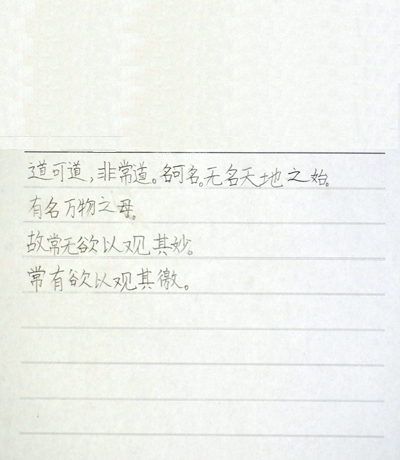 道可道,非常道。名可名。无名天地之始。
有名万物之母。
故常无欲以观其妙。
常有欲以观其徼。